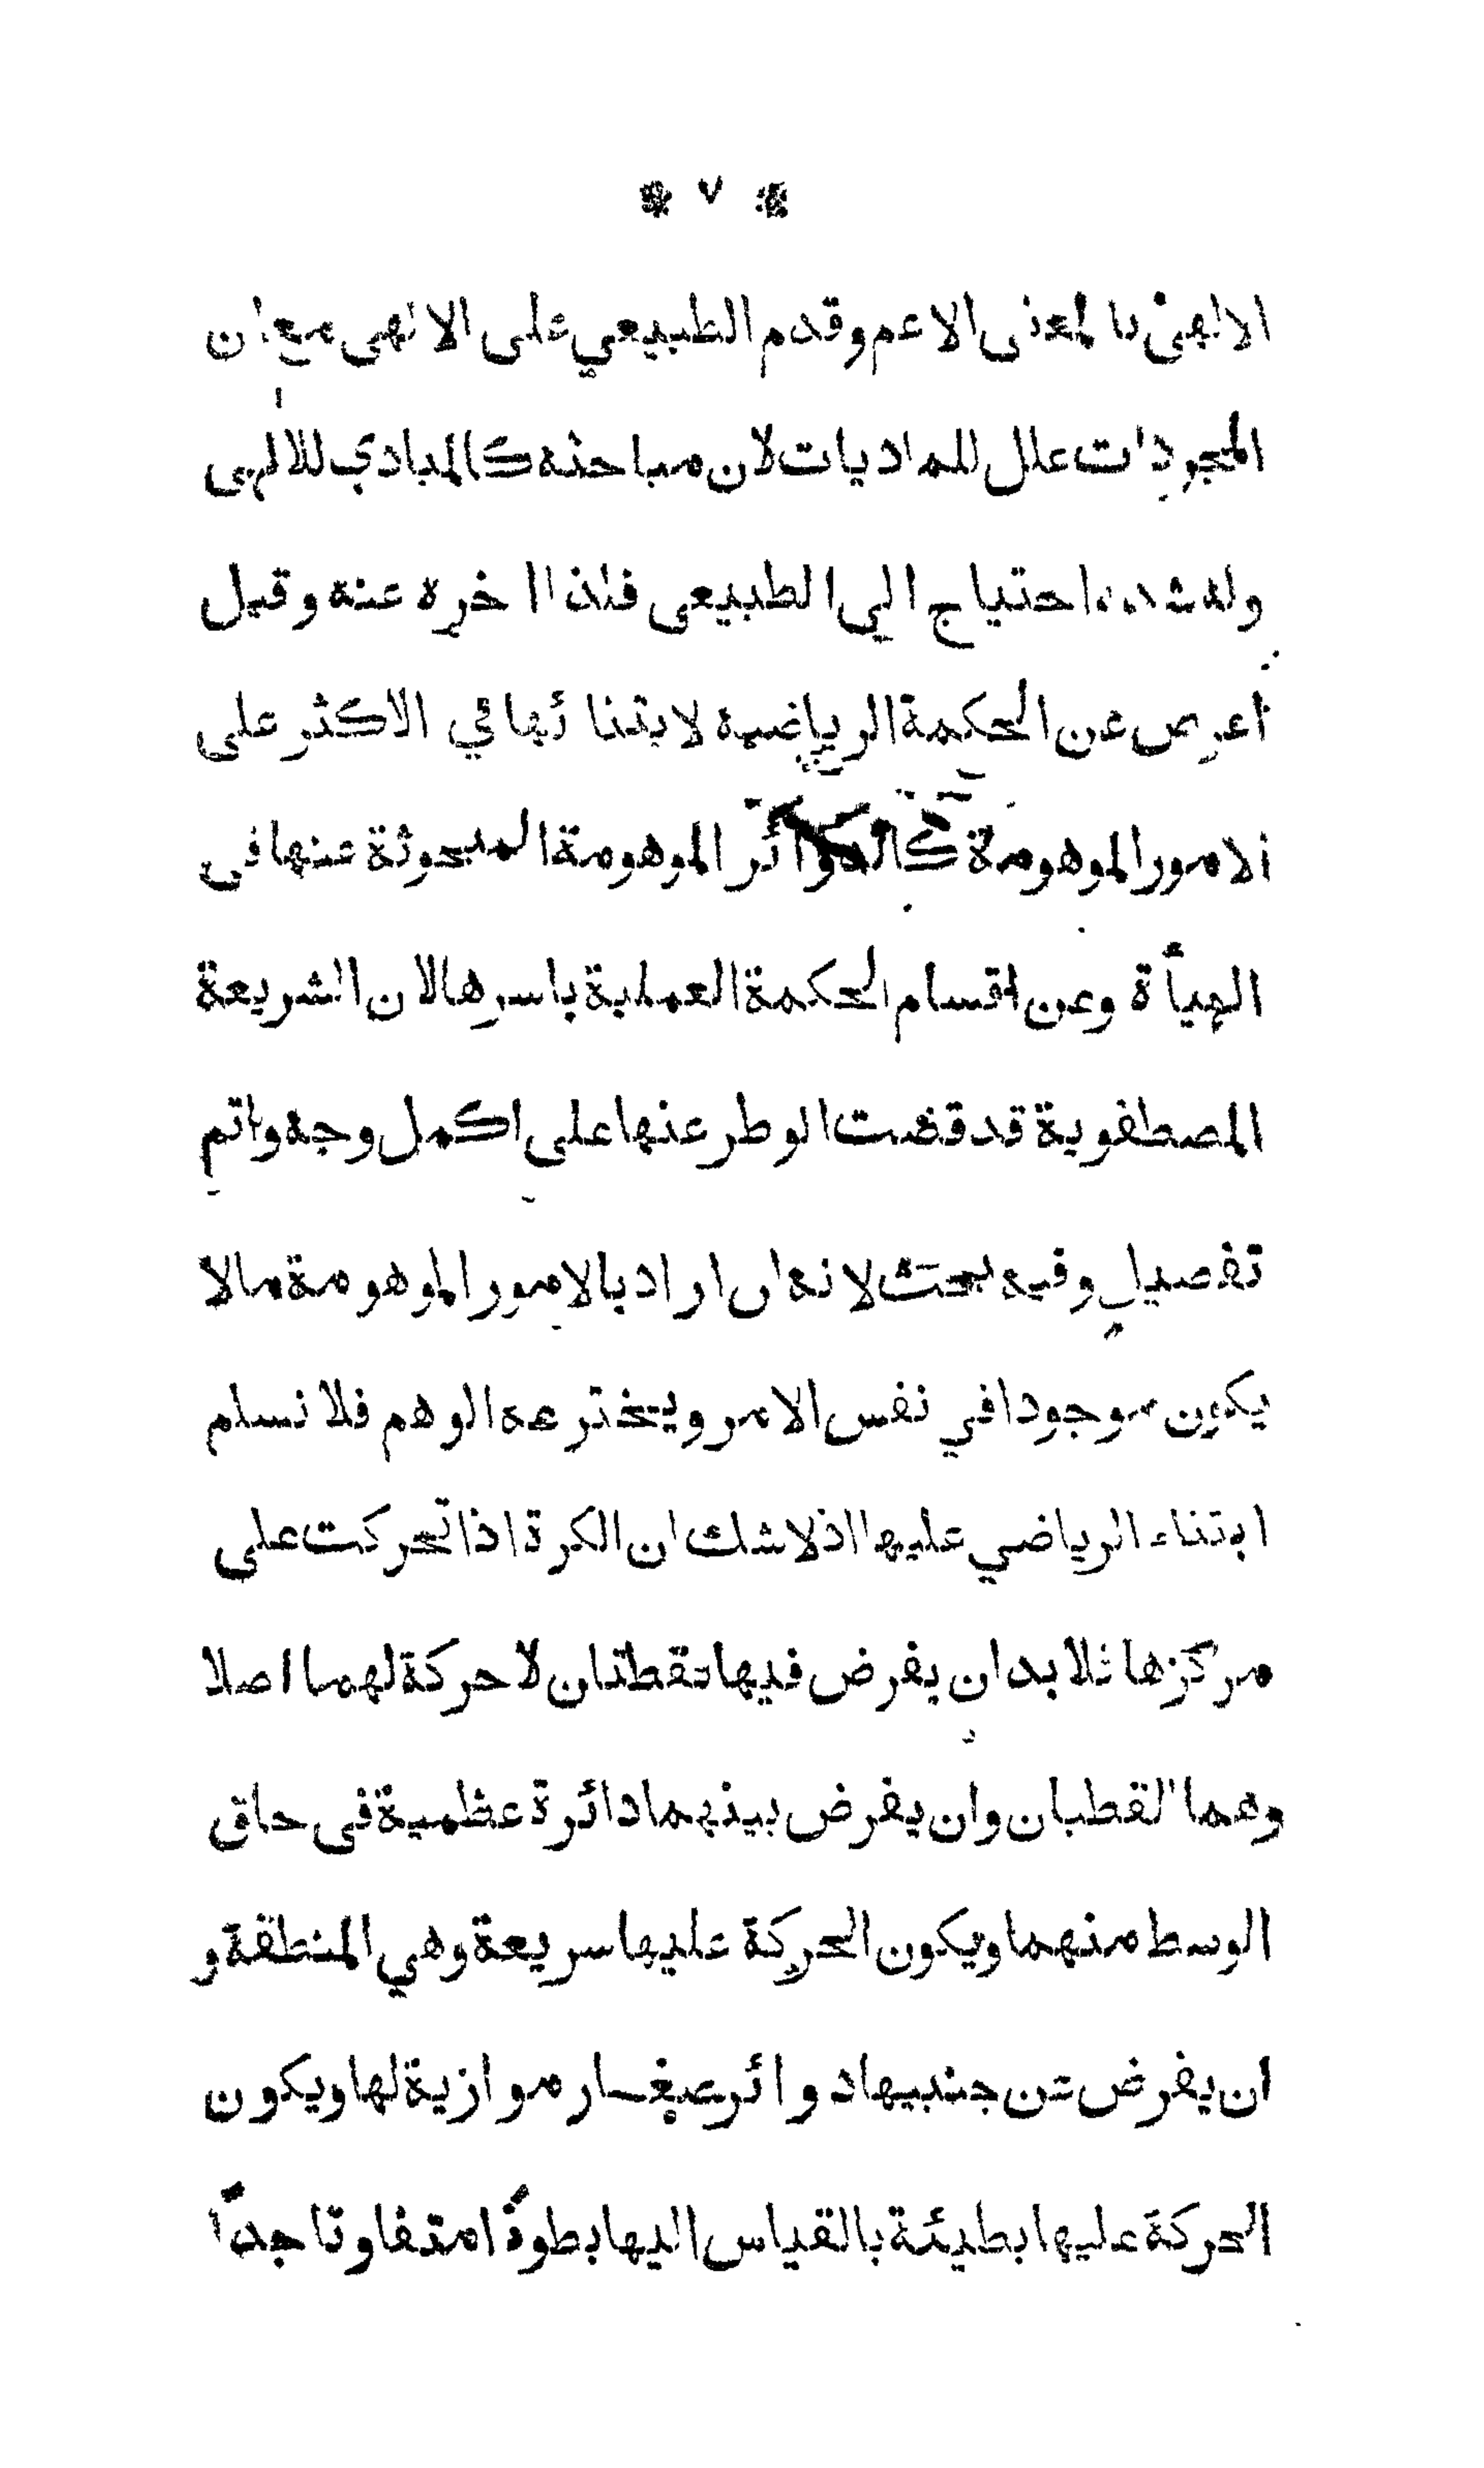 * ٧ *
الالهي بالمعنى الاعم وقدم الطبيعي على الالهى مع ان
المجردات علل للماديات لان مباحثه كالمبادي للالهى
وله شدة احتياج الي الطبيعى فلذا اخره عنه وقيل
اعرض عن الحكمة الرياضية لابتنائها في الاكثر على
الامور الموهومة كالدوائر الموهومة المبحوثة عنها فى
الهيأة وعن اقسام الحكمة العملية باسرها لان الشريعة
المصطفوية قد قضت الوطر عنها على اكمل وجه واتم
تفصيل وفيه بحث لانه ان اراد بالامور الموهومة مالا
يكون موجودا في نفس الامر ويخترعه الوهم فلا نسلم
ابتناء الرياضي عليها اذ لاشك ان الكرة اذا تحركت على
مركزها فلا بد ان يفرض فيها نقطتان لا حركة لهما اصلا
وهما القطبان وان يفرض بينهما دائرة عظمية فى حاق
الوسط منهما ويكون الحركة عليها سريعة وهي المنطقة و
ان يفرض عن جنبيها دوائر صغار موازية لها ويكون
الحركة عليها بطيئة بالقياس اليها بطوءًا متفاوتا جدًا